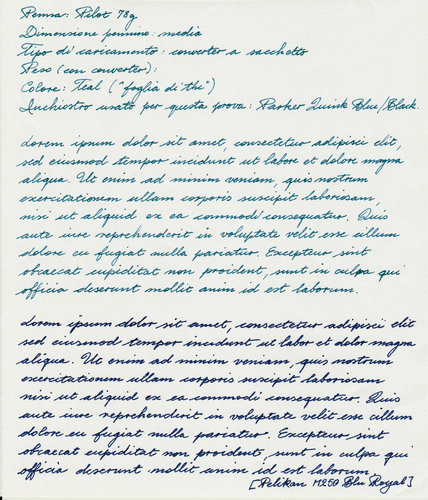 Penna: Pilot 78g
Dimensione pennino: media
Tipo di caricamento: converter a sacchetto
Peso (con converter):
Colore: Teal ("foglia di thi")
Inchiostro usato per questa prova: Parker Quink Blue/Black.
Lorem ipsum dolor sit amet, consectetur adipisci elit,
sed eiusmod tempor incidunt ut labore et dolore magna
aliqua. Ut enim ad minim veniam, quis nostrum
exercitationem ullam corporis suscipit laboriosam,
nisi ut aliquid ex ea commodi consequatur. Quis
aute iure reprehenderit in voluptate velit esse cillum
dolore eu fugiat nulla pariatur. Excepteur sint
obcaecat cupiditat non proident, sunt in culpa qui
officia deserunt mollit anim id est laborum.
Lorem ipsum dolor sit amet, consectetur adipisci elit
sed eiusmod tempor incidunt ut labor et dolor magna
aliqua. Ut enim ad minim veniam, quis nostrum
exercitationem ullam corporis suscipit laboriosam
nisi ut aliquid ex ea commodi consequatur. Quis
aute iure reprehenderit in voluptate velit esse cillum
dolore eu fugiat nulla pariatur. Excepteur sint
obcaecat cupiditat non proident, sunt in culpa qui
officia deserunt mollit anim id est laborum.
[Pelikan M250 Blu Royal]